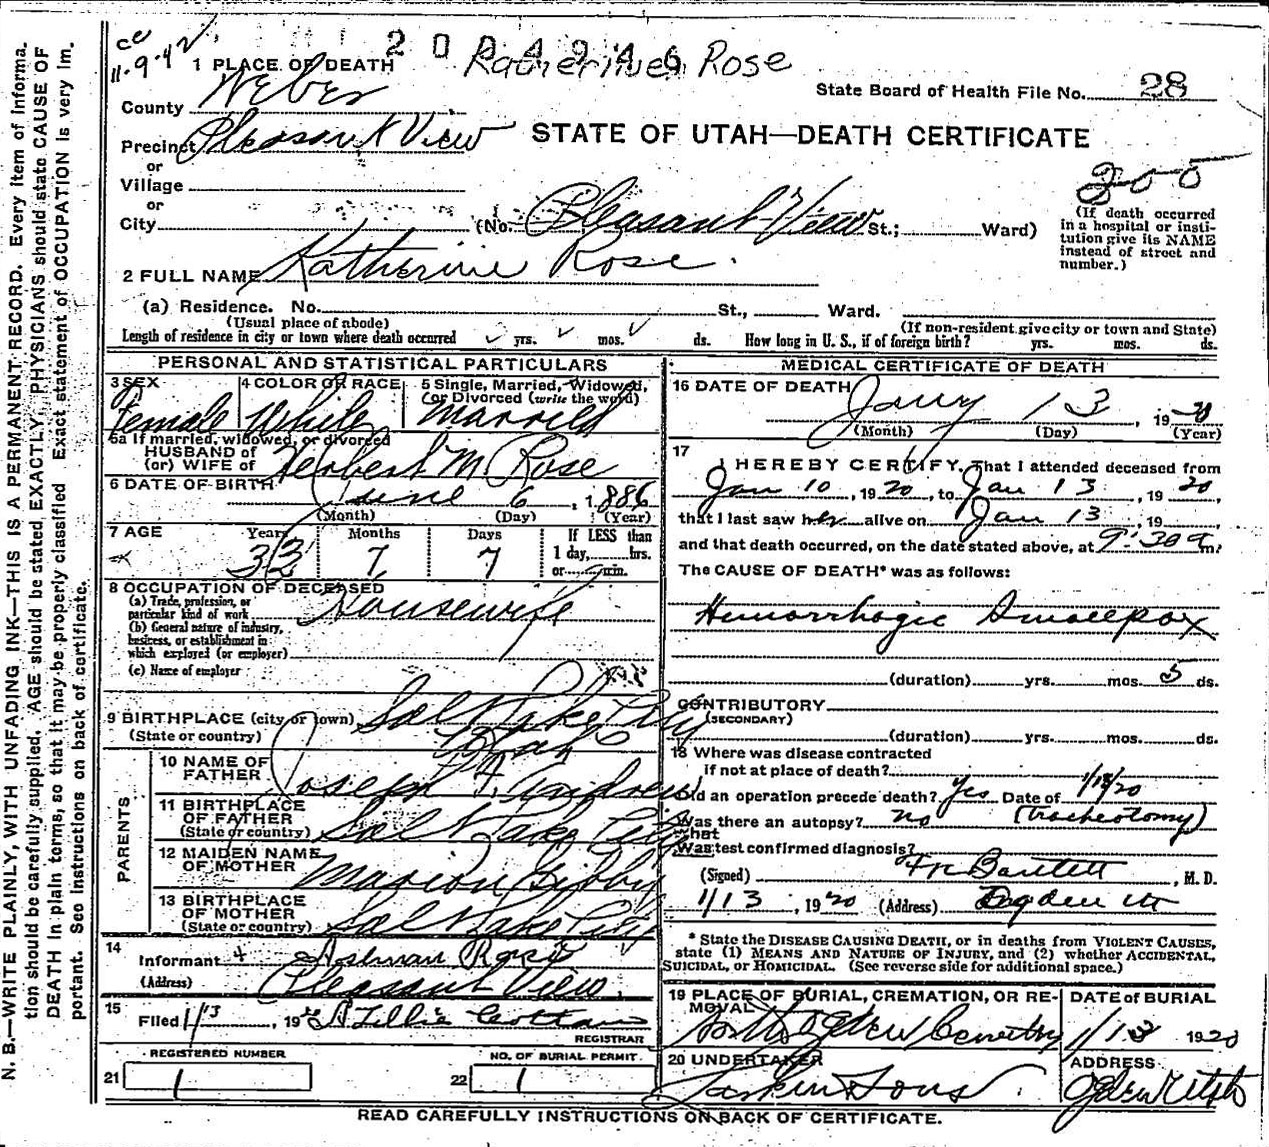 N. B.—WRITE PLAINLY, WITH UNFADING INK—THIS IS A PERMANENT RECORD. Every item of informa-
tion should be carefully supplied. AGE should be stated EXACTLY. PHYSICIANS should state CAUSE OF
DEATH in plain terms, so that it may be properly classified. Exact statement of OCCUPATION is very im-
portant. See instructions on back of certificate.
11-9-42
Katherine Rose
1 PLACE OF DEATH
State Board of Health File No. 28
County Weber
STATE OF UTAH—DEATH CERTIFICATE
Precinct Pleasant View
or
Village
or
City (No. Pleasant View St.; Ward)
(If death occurred
in a hospital or insti-
tution give its NAME
instead of street and
number.)
2 FULL NAME Katherine Rose.
(a) Residence. No. St., Ward.
(Usual place of abode) (If non-resident give city or town and State)
Length of residence in city or town where death occurred yrs. mos. ds. How long in U. S., if of foreign birth? yrs. mos. ds.
PERSONAL AND STATISTICAL PARTICULARS
3 SEX Female
4 COLOR OR RACE White
5 Single, Married, Widowed,
or Divorced (write the word)
Married
5a If married, widowed, or divorced
HUSBAND of
(or) WIFE of Herbert M. Rose
6 DATE OF BIRTH June 6, 1886
(Month) (Day) (Year)
7 AGE Years 33 Months 7 Days 7
If LESS than
1 day, hrs.
or min.
8 OCCUPATION OF DECEASED
(a) Trade, profession, or
particular kind of work Housewife
(b) General nature of industry,
business, or establishment in
which employed (or employer)
(c) Name of employer
9 BIRTHPLACE (city or town) Salt Lake City
(State or country) Utah
PARENTS
10 NAME OF
FATHER Joseph A. Andrew
11 BIRTHPLACE
OF FATHER
(State or country) Salt Lake City
12 MAIDEN NAME
OF MOTHER Marion Gibby
13 BIRTHPLACE
OF MOTHER
(State or country) Salt Lake City
14
Informant Rose
(Address) Pleasant View
15
Filed 1/13, 1920
REGISTRAR
REGISTERED NUMBER
21 1
NO. OF BURIAL PERMIT.
22 1
MEDICAL CERTIFICATE OF DEATH
16 DATE OF DEATH Jany 13, 1920
(Month) (Day) (Year)
17
I HEREBY CERTIFY, That I attended deceased from
Jan 10, 1920, to Jan 13, 1920,
that I last saw her alive on Jan 13, 19
and that death occurred, on the date stated above, at 9:30 a m.
The CAUSE OF DEATH* was as follows:
Hemorrhagic Smallpox
(duration) yrs. mos. 5 ds.
CONTRIBUTORY
(SECONDARY)
(duration) yrs. mos. ds.
18 Where was disease contracted
if not at place of death?
Did an operation precede death? Yes Date of 1/13/20
Was there an autopsy? no (Tracheotomy)
What
test confirmed diagnosis?
(Signed) Bartlett, M. D.
1/13, 1920 (Address) Ogden Ut
* State the DISEASE CAUSING DEATH, or in deaths from VIOLENT CAUSES,
state (1) MEANS AND NATURE OF INJURY, and (2) whether ACCIDENTAL,
SUICIDAL, or HOMICIDAL. (See reverse side for additional space.)
19 PLACE OF BURIAL, CREMATION, OR RE-
MOVAL
North Ogden Cemetery
DATE of BURIAL
1/13 1920
20 UNDERTAKER
Larkin & Sons
ADDRESS
Ogden Utah
READ CAREFULLY INSTRUCTIONS ON BACK OF CERTIFICATE.